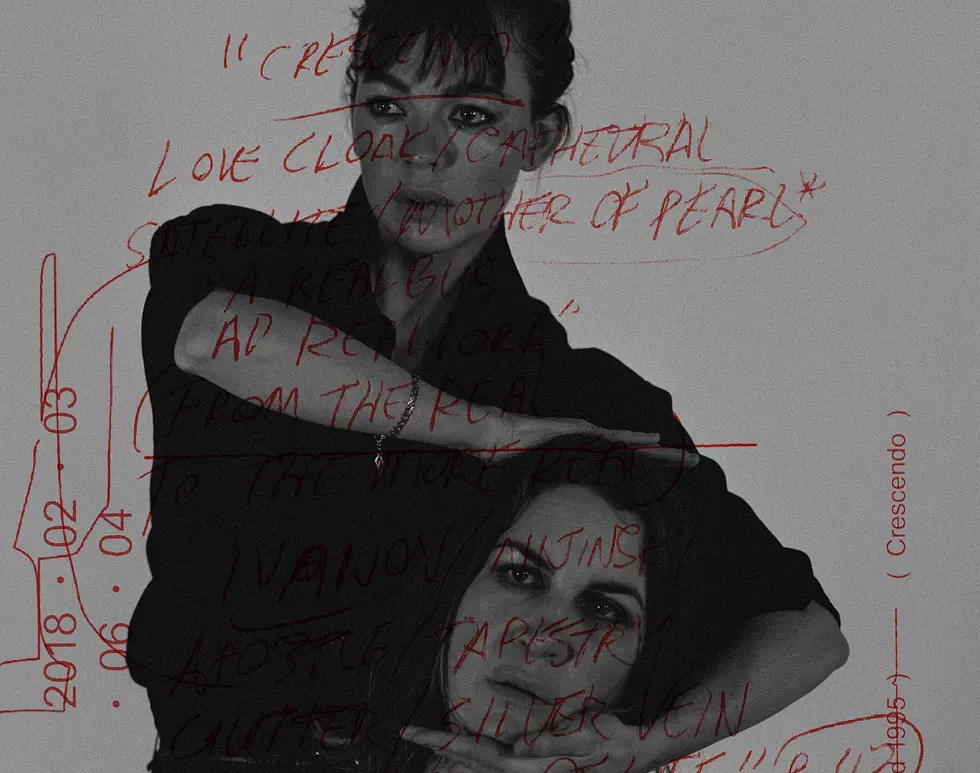 "CRESCENDO"
LOVE CLOAK / CATHEDRAL
SATELLITE / MOTHER OF PEARL*
"A REALIBUS
AD REALIORA"
(FROM THE REAL
To THE MORE REAL)
IVANOV / NIJINSKY
APOSTLE / TAPESTRY
GUTTER / SILVER VEIN
2018 · 02 · 03
· 06 · 04
( Crescendo )
1995 )